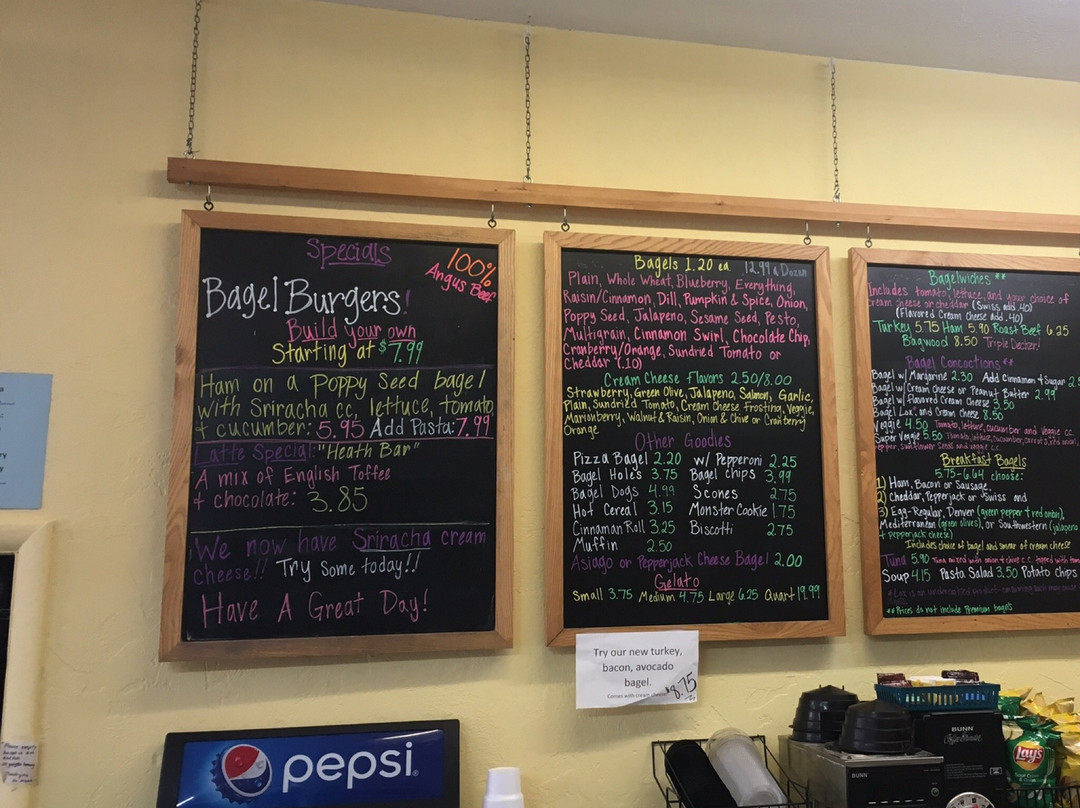 Specials
100%
Angus Beef
Bagel Burgers!
Build your own
Starting at $7.99
Ham on a Poppy Seed bagel
with Sriracha cc, lettuce, tomato,
+ cucumber: 5.95 Add Pasta: 7.99
Latte Special: "Heath Bar"
A mix of English Toffee
+ chocolate: 3.85
We now have Sriracha cream
cheese!! Try some today!!
Have A Great Day!
Bagels 1.20 ea 12.99 a Dozen
Plain, Whole Wheat, Blueberry, Everything,
Raisin/Cinnamon, Dill, Pumpkin & Spice, Onion,
Poppy Seed, Jalapeno, Sesame Seed, Pesto,
Multigrain, Cinnamon Swirl, Chocolate Chip,
Cranberry/Orange, Sundried Tomato or
Cheddar (.10)
Cream Cheese Flavors 2.50/8.00
Strawberry, Green Olive, Jalapeno, Salmon, Garlic,
Plain, Sundried Tomato, Cream Cheese Frosting, Veggie,
Marionberry, Walnut & Raisin, Onion & Chive or Cranberry
Orange
Other Goodies
Pizza Bagel 2.20 w/ Pepperoni 2.25
Bagel Holes 3.75 Bagel Chips 3.99
Bagel Dogs 4.99 Scones 2.75
Hot Cereal 3.15 Monster Cookie 1.75
Cinnamon Roll 3.25 Biscotti 2.75
Muffin 2.50
Asiago or Pepperjack Cheese Bagel 2.00
Gelato
Small 3.75 Medium 4.75 Large 6.25 Quart 19.99
Bagelwiches **
Includes tomato, lettuce, and your choice of
cream cheese or cheddar (Swiss add .40)
(Flavored Cream Cheese add .40)
Turkey 5.75 Ham 5.90 Roast Beef 6.25
Bagwood 8.50 Triple Decker!
Bagel Concoctions **
Bagel w/ Margarine 2.30 Add Cinnamon + Sugar
Bagel w/ Cream Cheese or Peanut Butter 2.99
Bagel w/ Flavored Cream Cheese 3.50
Bagel Lox, and Cream Cheese 8.50
Veggie 4.50 Tomato, lettuce, cucumber and Veggie cc
Super Veggie 5.50 Tomato, lettuce, cucumber, carrot, red onion,
pepper, sunflower seeds and veggie cc
Breakfast Bagels
5.75-6.64 choose:
1) Ham, Bacon or Sausage,
2) Cheddar, Pepperjack or Swiss and
3) Egg-Regular, Denver (green pepper + red onion),
Mediterranean (green olives), or Southwestern (jalapeno
+ pepperjack cheese)
Includes choice of bagel and smear of cream cheese
Tuna 5.90
Soup 4.15 Pasta Salad 3.50 Potato Chips
** Prices do not include Premium bagels
Try our new turkey,
bacon, avocado
bagel.
Comes with cream cheese $8.75
pepsi
BUNN
BUNN
Lay's